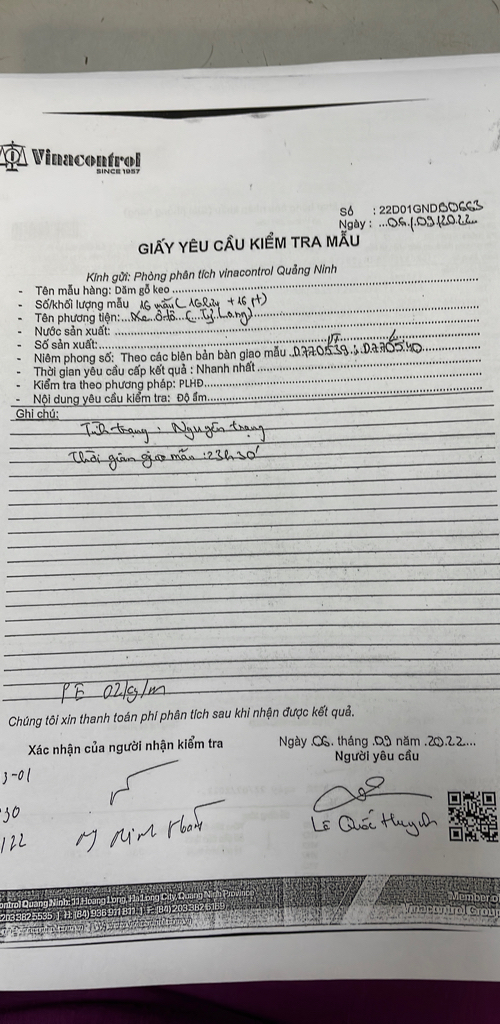 Vinacontrol
SINCE 1957
Số : 22D01GNDB0663
Ngày : ...06/09/2022...
GIẤY YÊU CẦU KIỂM TRA MẪU
Kính gửi: Phòng phân tích vinacontrol Quảng Ninh
- Tên mẫu hàng: Dăm gỗ keo
- Số/khối lượng mẫu 16 mẫu (
- Tên phương tiện:... Xe ô tô
- Nước sản xuất:
- Số sản xuất:
- Niêm phong số: Theo các biên bản bàn giao mẫu 0770539 0770540
- Thời gian yêu cầu cấp kết quả : Nhanh nhất
- Kiểm tra theo phương pháp: PLHĐ
- Nội dung yêu cầu kiểm tra: Độ ẩm
Ghi chú:
Tình trạng : Nguyên trạng
Thời gian giao mẫu : 23h30'
PE 02kg/m
Chúng tôi xin thanh toán phí phân tích sau khi nhận được kết quả.
Xác nhận của người nhận kiểm tra
Ngày 06. tháng .09 năm .2022....
Người yêu cầu
3-01
30
122
Lê Quốc Huynh
ontrol Quang Ninh: 11 Hoang Long, Ha Long City, Quang Ninh Province
2033825535 | H: (84) 936 911 811 | F: (84) 2033826169
Member of
Vinacontrol Group